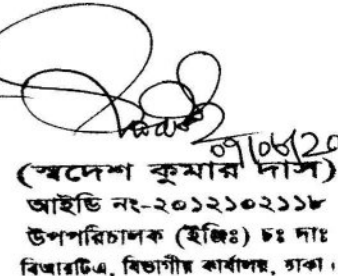 ০৭/০৬/20
(স্বদেশ কুমার দাস)
আইডি নং-২০১২১০২১১৮
উপপরিচালক (ইঞ্জিঃ) চঃ দাঃ
বিআরটিএ, বিভাগীয় কার্যালয়, ঢাকা।